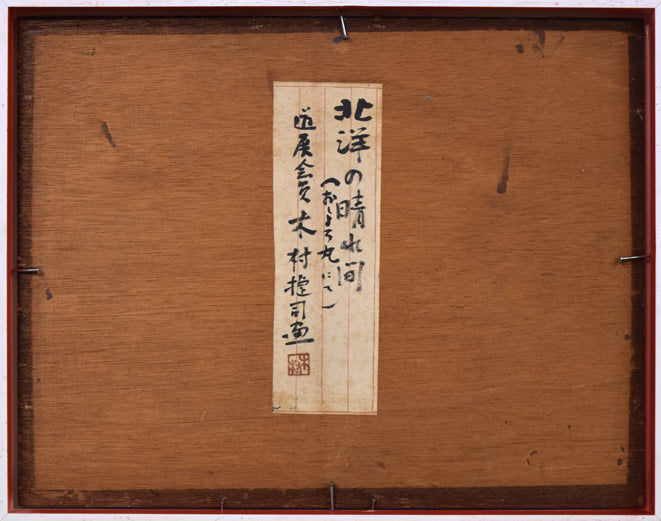 北洋の晴れ間
(おしよろ丸にて)
道展会員 木村捷司画
木村